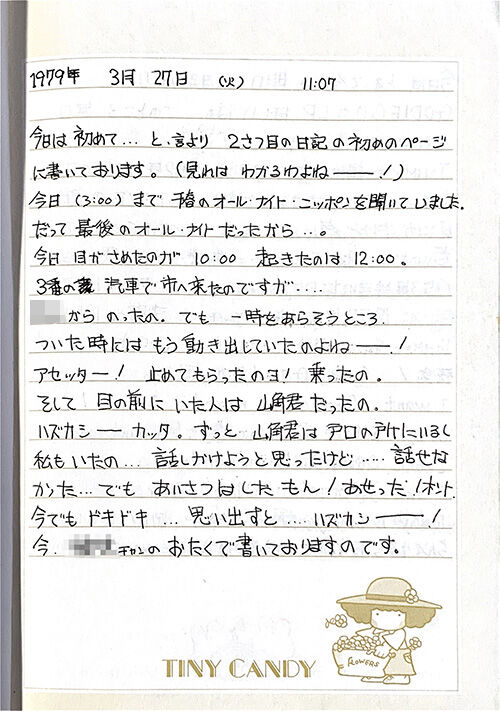 1979年 3月 27日 (火) 11:07
今日は初めて…と、言より 2さつ目の日記の初めのページ
に書いております。(見れば わかるわよねー!)
今日 (3:00) まで 千春のオール・ナイト・ニッポンを聞いていました。
だって 最後のオール・ナイトだったから…。
今日 目がさめたのが 10:00 起きたのは 12:00。
3番の 汽車で市へ来たのですが…..
から のったの。でも 一時をあらそうところ.
ついた時には もう動き出していたのよねー!
アセッター! 止めてもらったのヨ! 乗ったの。
そして 目の前に いた人は 山角君 だったの。
ハズカシー カッタ。ずっと 山角君は
私もいたの… 話しかけようと思ったけど ….. 話せな
かった… でも あいさつはしたもん! あせった!ホント.
今でも ドキドキ … 思い出すと …. ハズカシー!
今. チャンの おたくで書いておりますのです。
FLOWERS
TINY CANDY